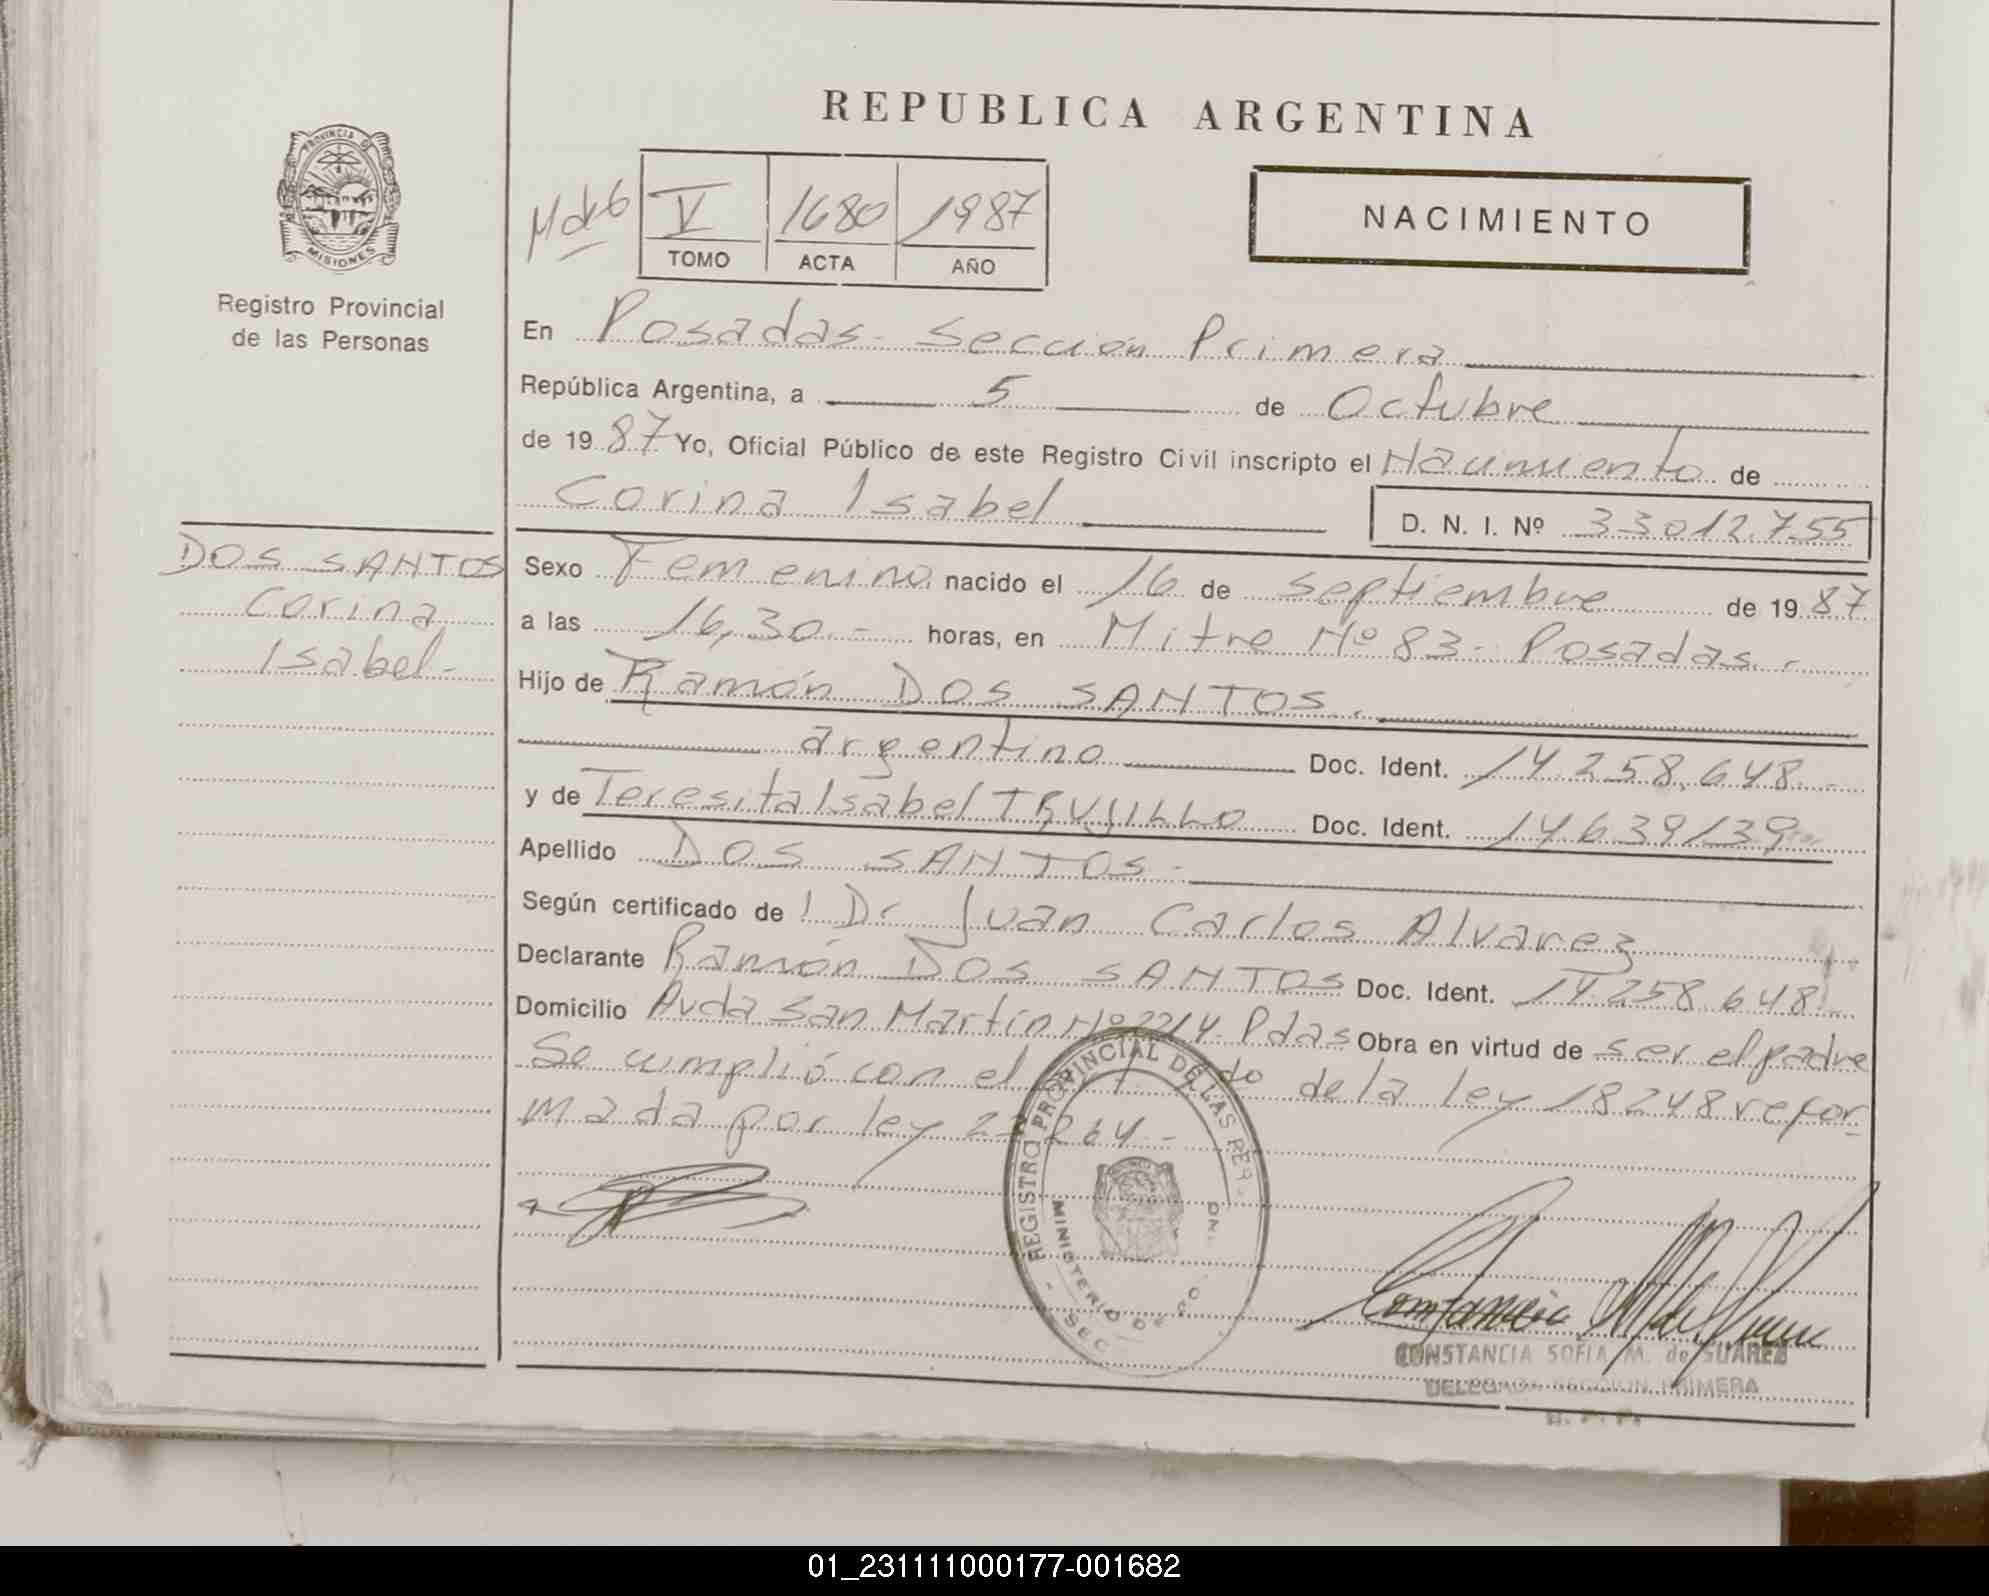 REPUBLICA ARGENTINA
PROVINCIA DE
MISIONES
Registro Provincial
de las Personas
V 1680 1987
TOMO ACTA AÑO
NACIMIENTO
En Posadas - Sección Primera
República Argentina, a 5 de Octubre
de 1987 Yo, Oficial Público de este Registro Civil inscripto el Nacimiento de
Corina Isabel
D. N. I. Nº 33012.755
DOS SANTOS
Corina
Isabel -
Sexo Femenino nacido el 16 de septiembre de 1987
a las 16,30.- horas, en Mitre Nº 83 - Posadas.-
Hijo de Ramón DOS SANTOS.
argentino Doc. Ident. 14.258.648.-
y de Teresita Isabel TRUJILLO Doc. Ident. 14639139
Apellido DOS SANTOS -
Según certificado de l Dr Juan Carlos Alvarez
Declarante Ramón DOS SANTOS Doc. Ident. 14.258.648.-
Domicilio Avda San Martín Nº 2214. Pdas Obra en virtud de ser el padre
Se cumplió con el do de la ley 18248 refor-
mada por ley
REGISTRO PROVINCIAL DE LAS PER
MINISTERIO DE
SEC
CONSTANCIA SOFIA M. de SUAREZ
DELEGADA SECCION PRIMERA
R. P. P.
01_231111000177-001682